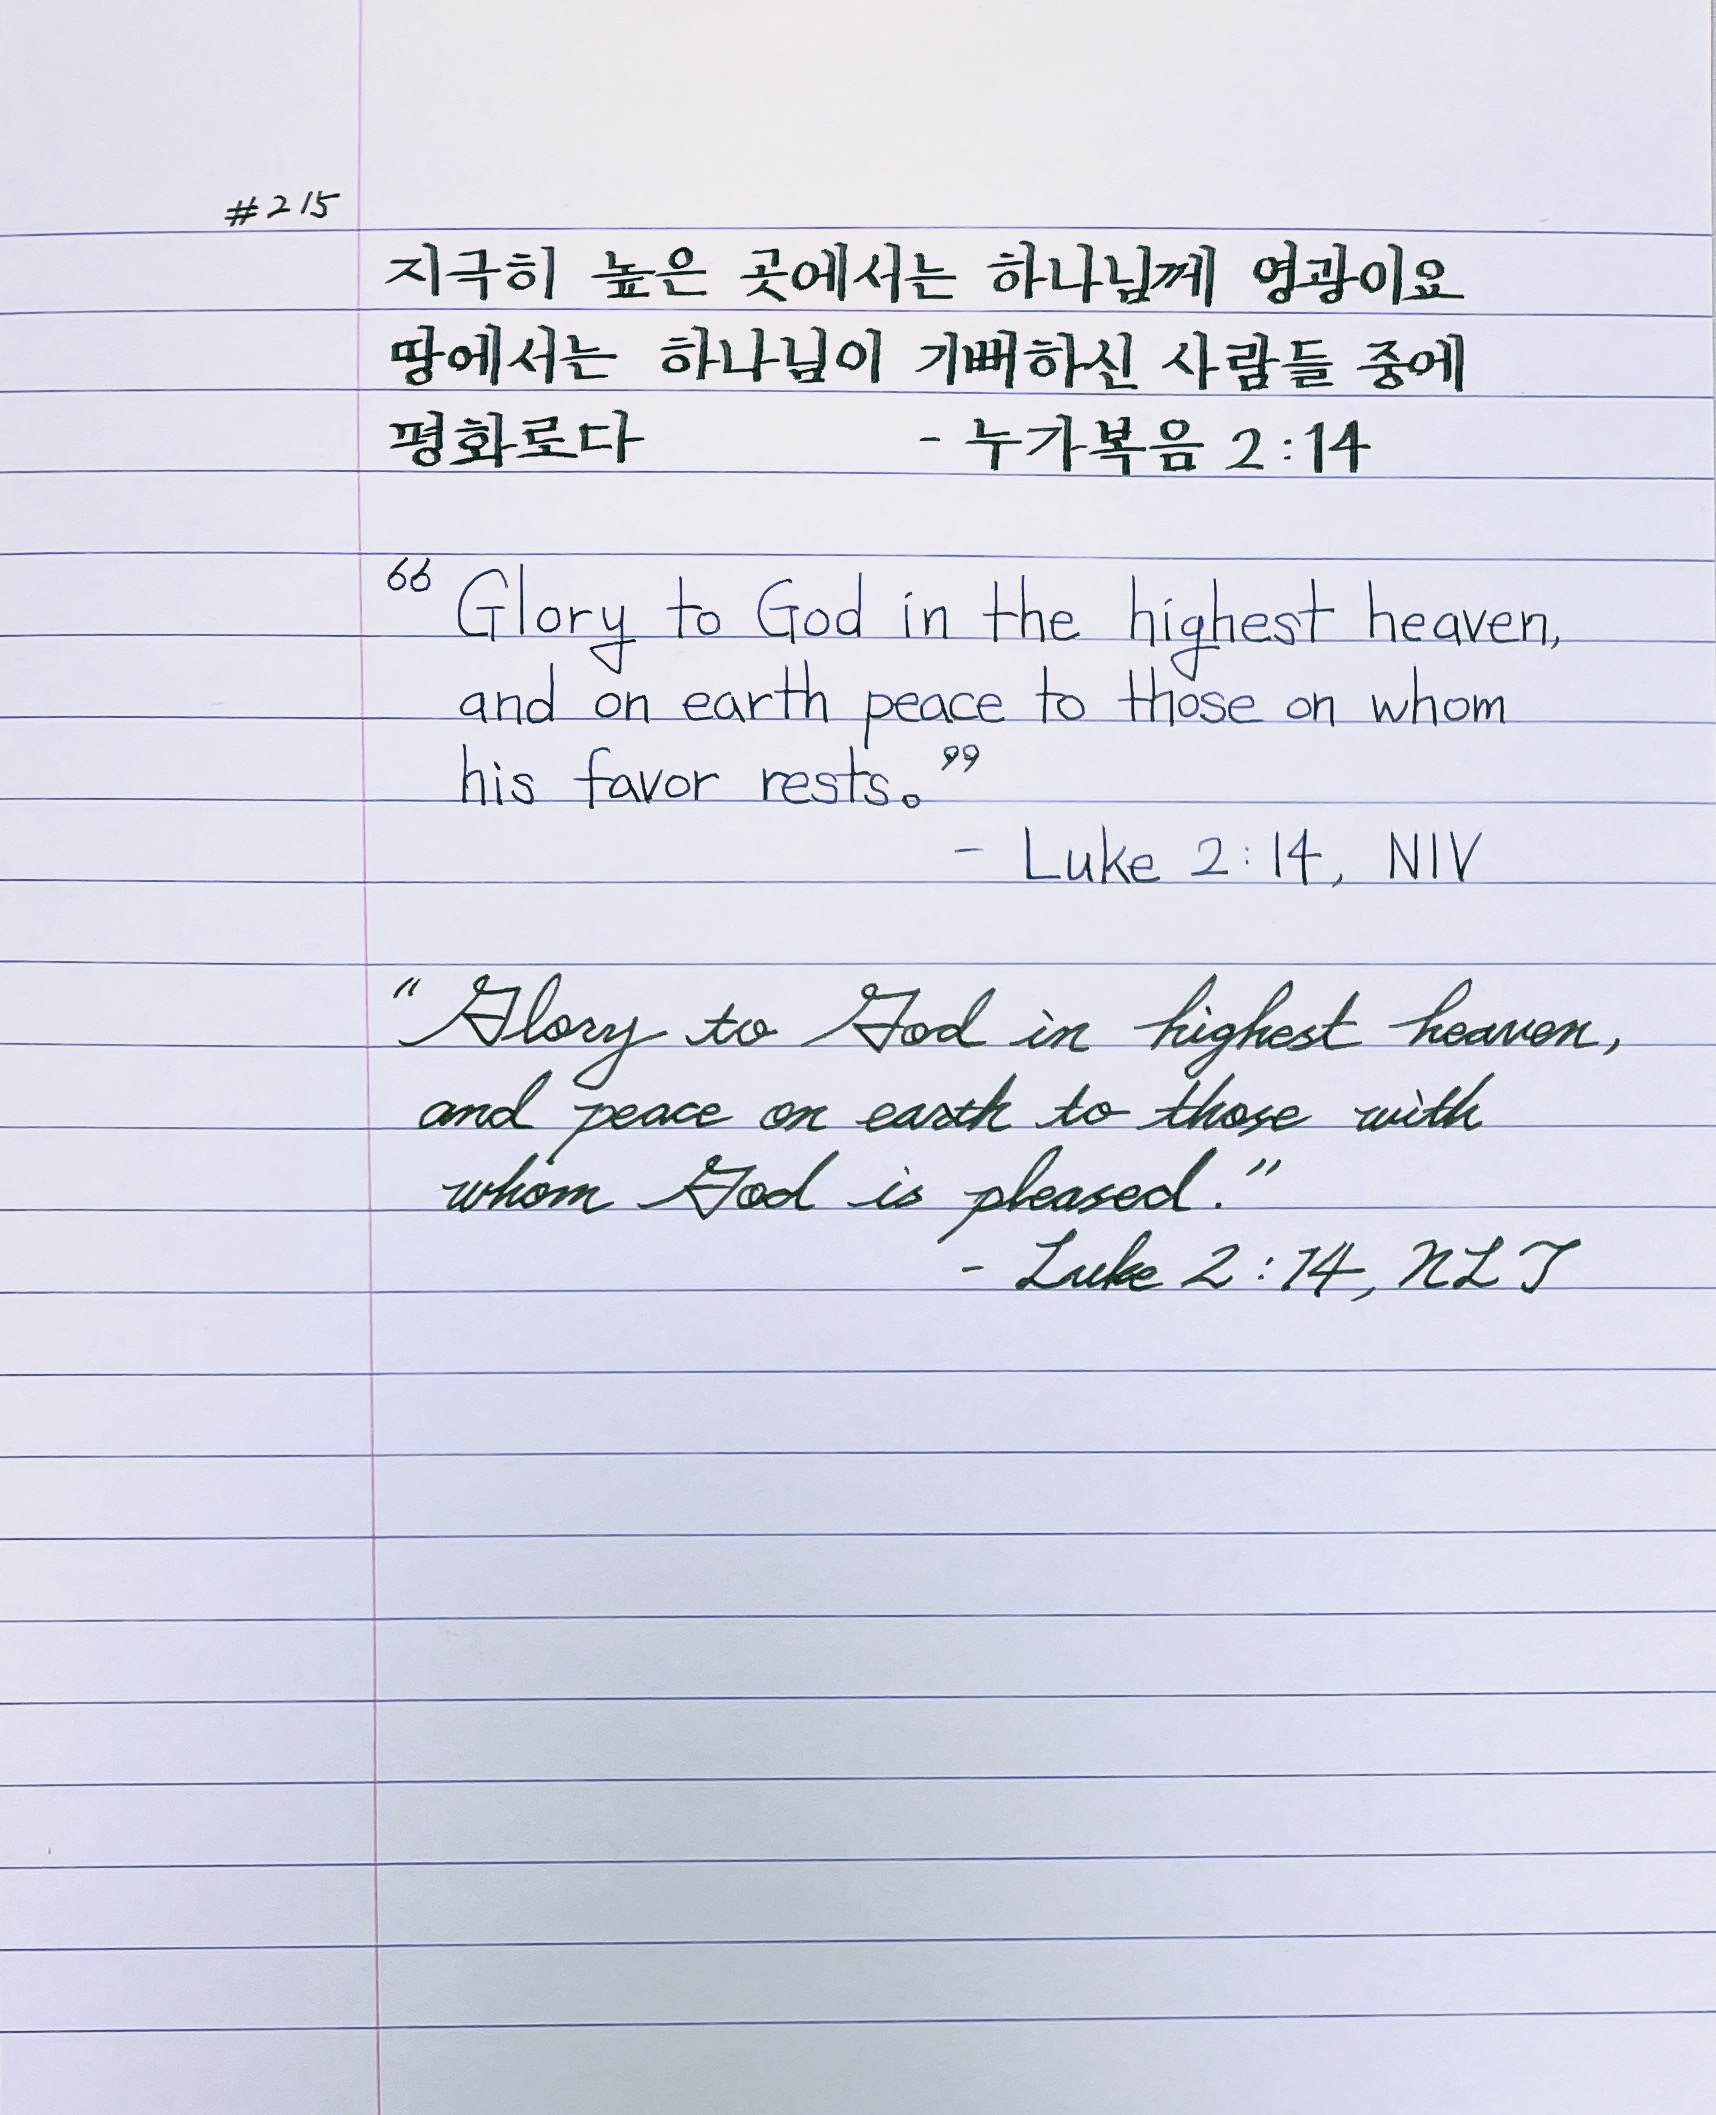 #215
지극히 높은 곳에서는 하나님께 영광이요
땅에서는 하나님이 기뻐하신 사람들 중에
평화로다 - 누가복음 2:14
“Glory to God in the highest heaven,
and on earth peace to those on whom
his favor rests.”
- Luke 2:14, NIV
“Glory to God in highest heaven,
and peace on earth to those with
whom God is pleased.”
- Luke 2:14, NLT